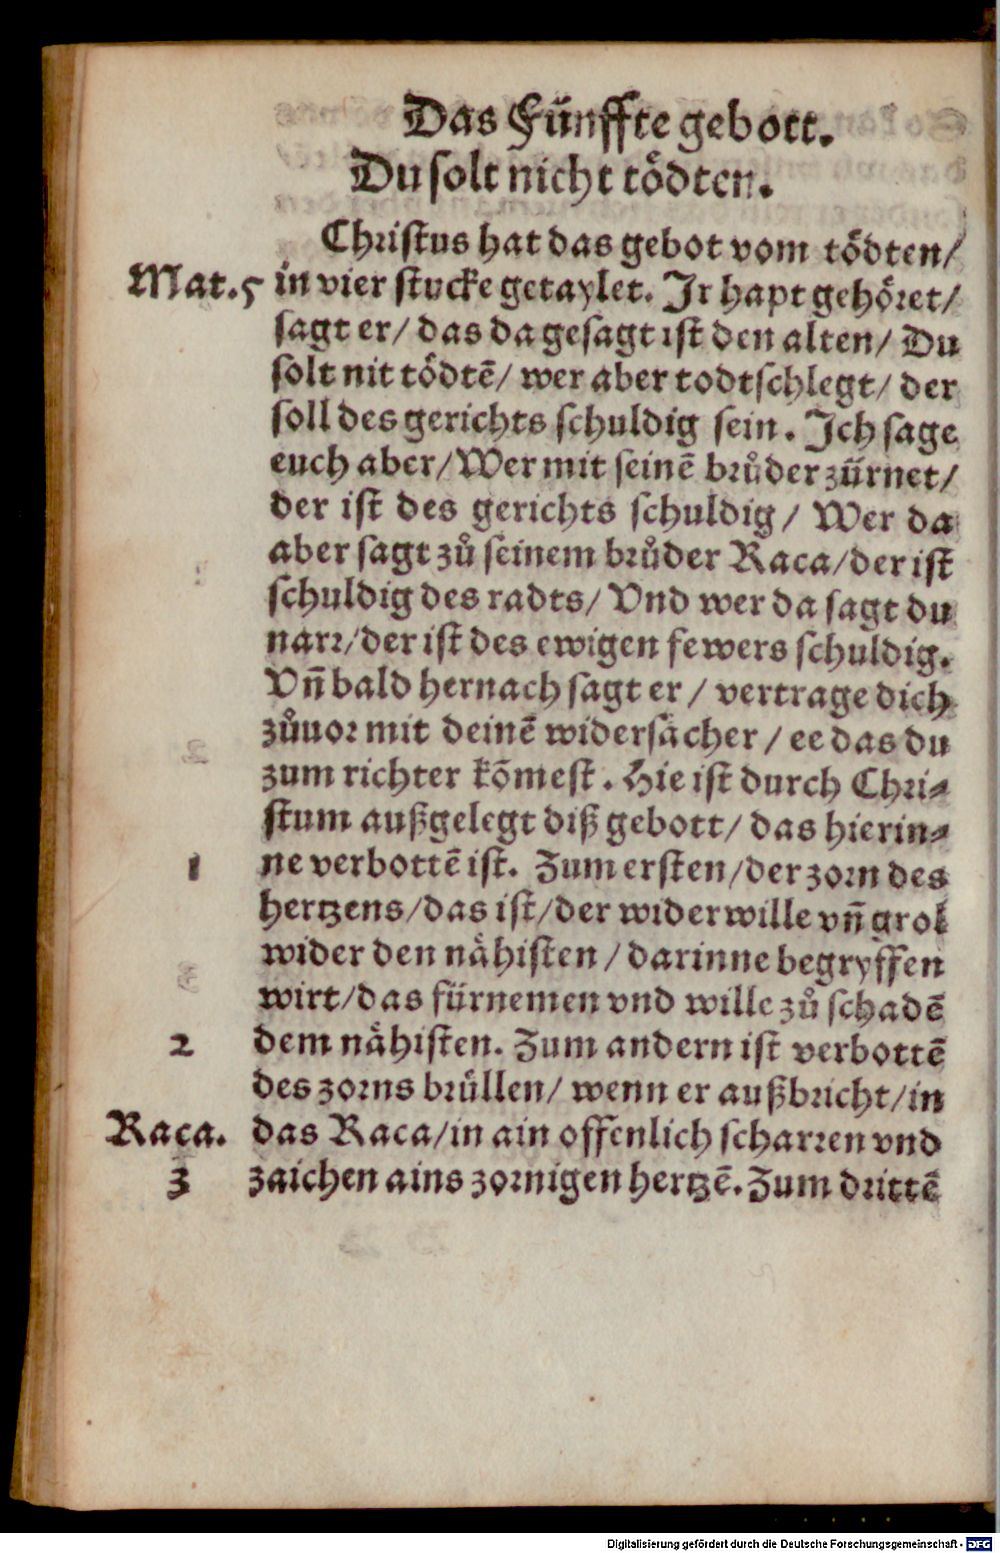 Das Fünffte gebott.
Du solt nicht tödten.
Christus hat das gebot vom tödten/
Mat.5 in vier stucke getaylet. Ir hapt gehöret/
sagt er/ das da gesagt ist den alten/ Du
solt nit tödtē/ wer aber todtschlegt/ der
soll des gerichts schuldig sein. Ich sage
euch aber/ Wer mit seinē brůder zürnet/
der ist des gerichts schuldig/ Wer da
aber sagt zů seinem brůder Raca/ der ist
schuldig des radts/ Vnd wer da sagt du
narr/ der ist des ewigen fewers schuldig.
Vñ bald hernach sagt er/ vertrage dich
zůuor mit deinē widersächer/ ee das du
zum richter kōmest. Hie ist durch Chri-
stum außgelegt diß gebott/ das hierin-
1 ne verbottē ist. Zum ersten/ der zorn des
hertzens/ das ist/ der widerwille vñ grol
wider den nähisten/ darinne begryffen
wirt/ das fürnemen vnd wille zů schadē
2 dem nähisten. Zum andern ist verbottē
des zorns brüllen/ wenn er außbricht/ in
Raca. das Raca/ in ain offenlich scharren vnd
3 zaichen ains zornigen hertzē. Zum drittē
Digitalisierung gefördert durch die Deutsche Forschungsgemeinschaft - DFG